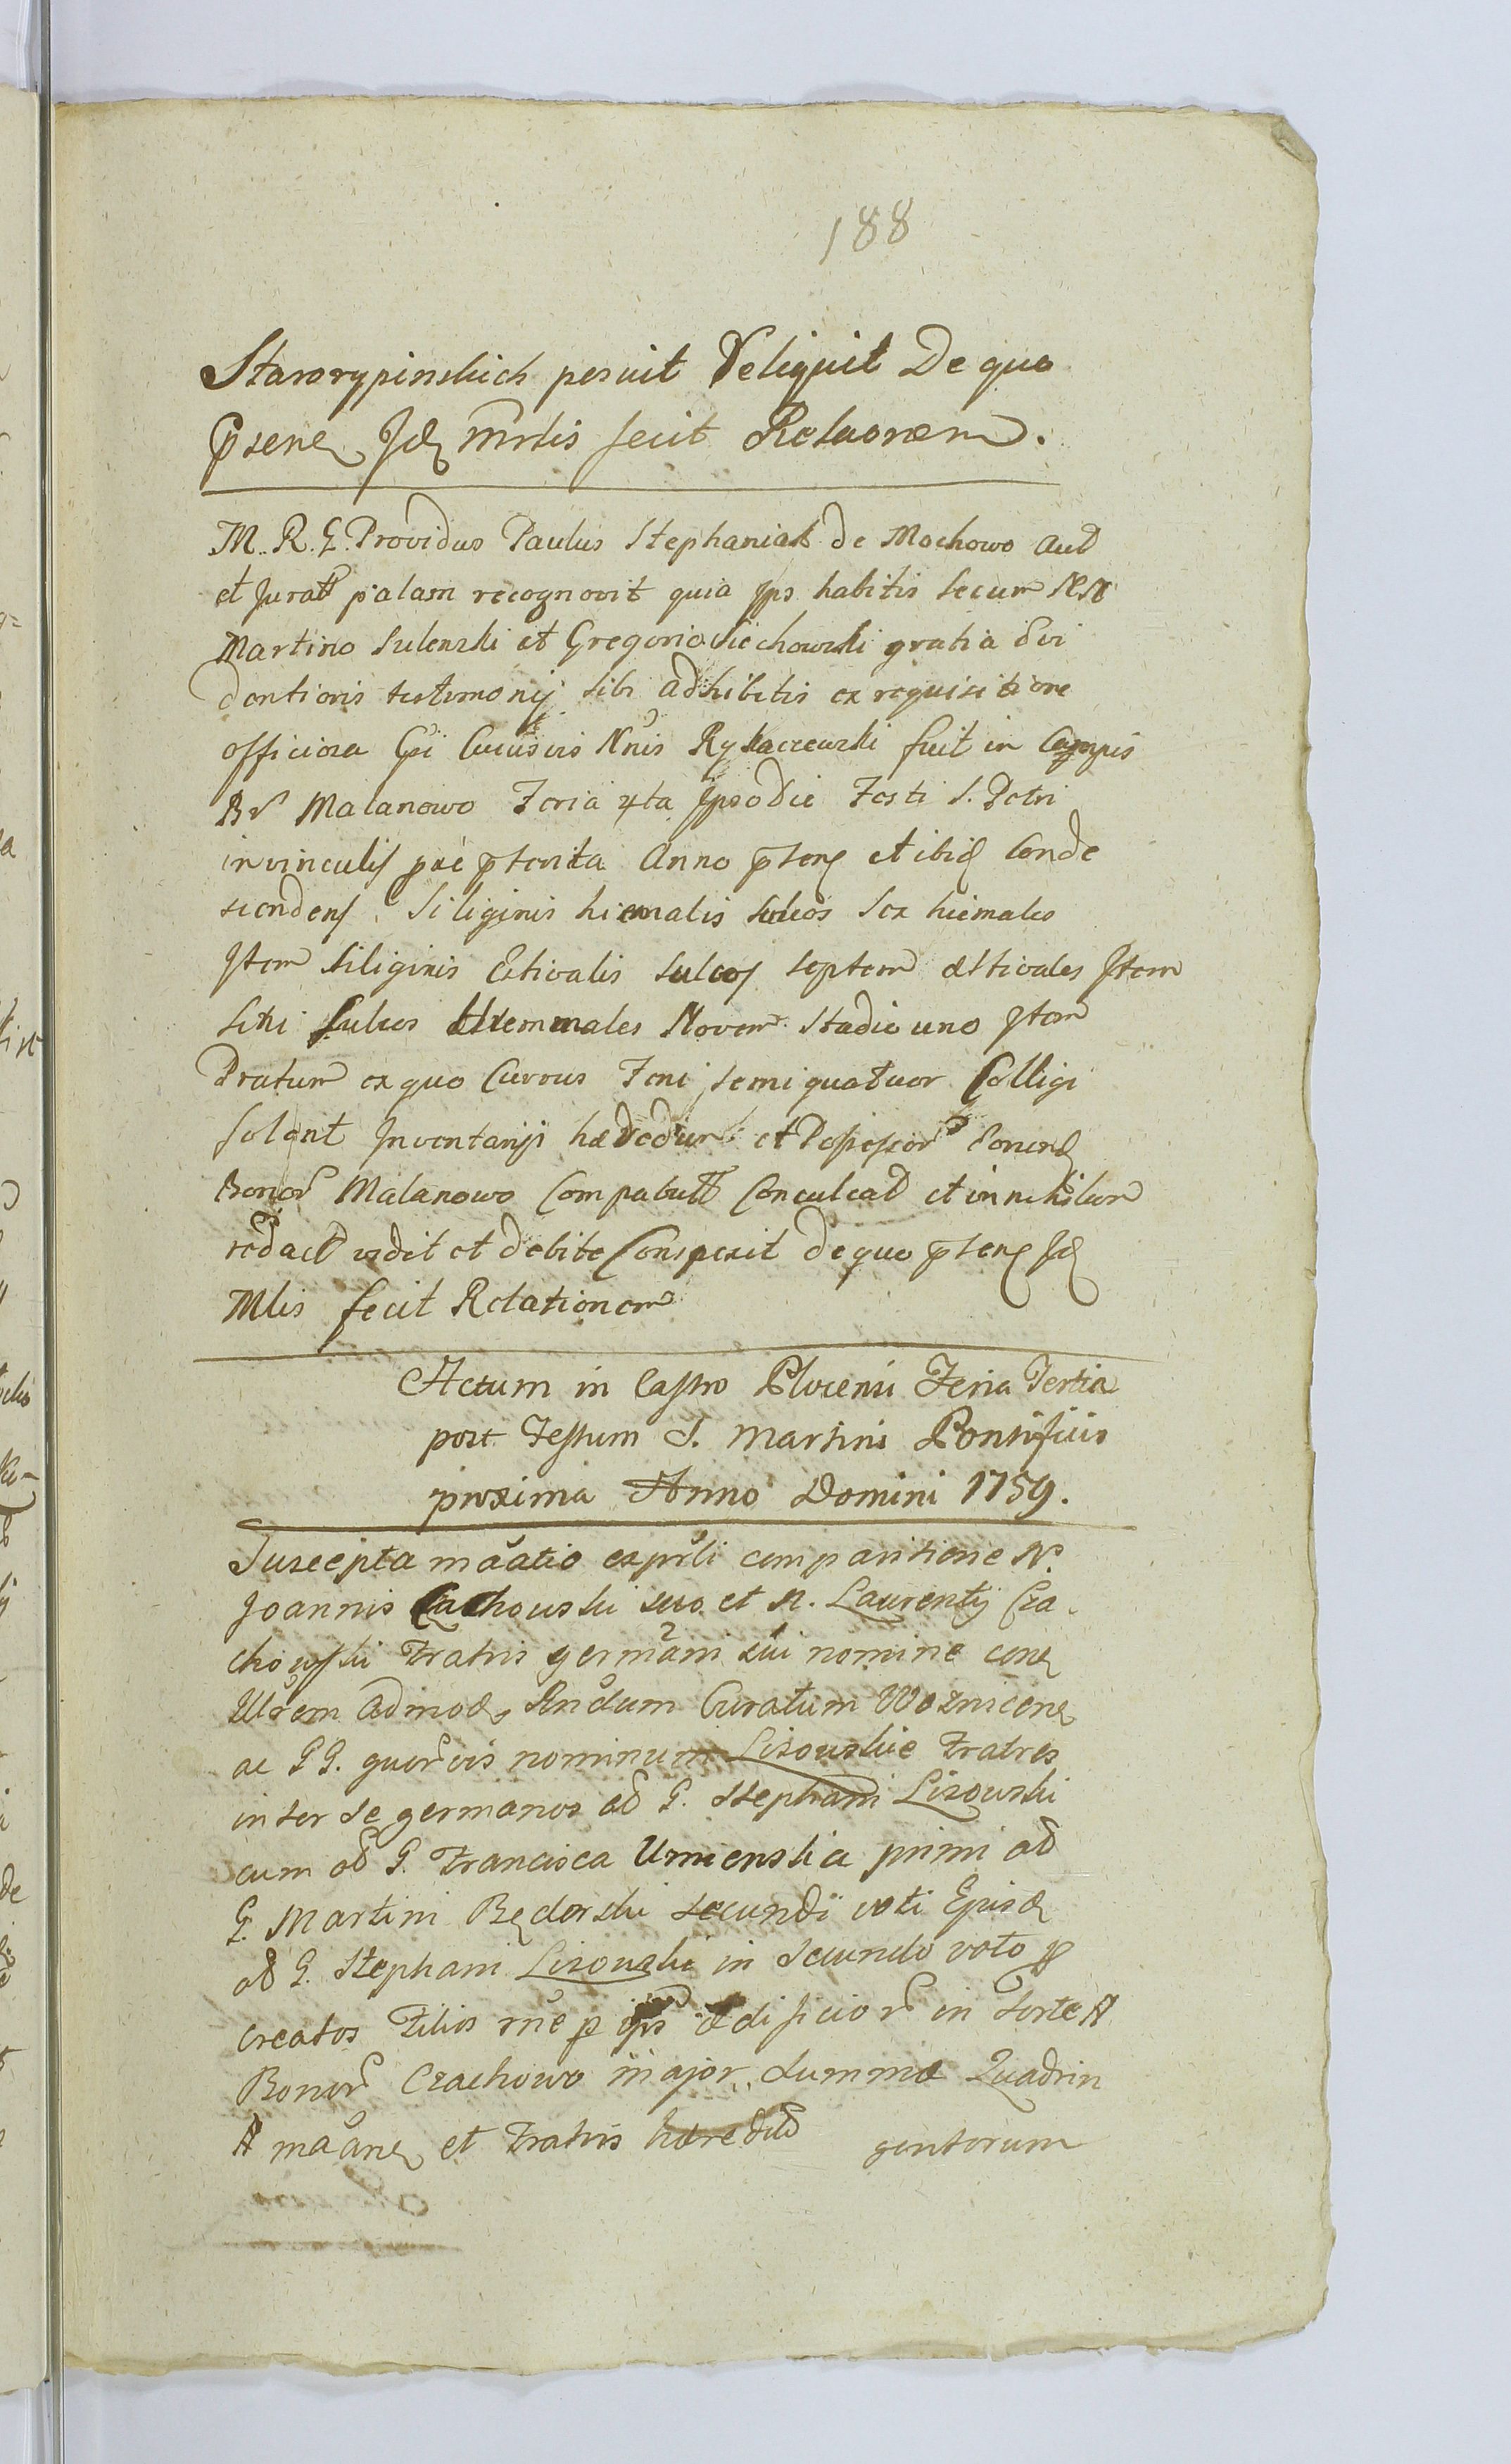 188
Starorypinskich posuit Reliquit De quo
pstene Jd mrlis fecit Relaōnem.
M. R. G. Providus Paulus Stephaniak de Mochowo Aut
et Jurat palam recognovit quia Ips habitis secum NN
Martino Sulenski et Gregorio Siechowski gratia Evi
dentioris testimonij sibi adhibitis ex requisitione
officiosa Gsi Cuiusvis Nnis Rykaczewski fuit in Campis
Br Malanowo Feria 4ta Ipso die Festi S. Petri
in vinculis præpterita Anno pstens et ibid Conde
scendens Siliginis hiemalis sulcos Sex hiemales
Item Siliginis Estivalis sulcos septem æstivales Item
siti sulcos hiemmales Novem stadio uno Item
Pratum ex quo Currus Feni semiquatuor Colligi
solent Inventarij hæredum et Possessor
Bonor Malanowo Compabult Conculcat et in nihilum
redact vidit et debite Conspexit de quo pstens Jd
Mlis fecit Relationem
Actum in Castro Plocensi Feria Tertia
post Festum S. Martini Pontificis
proxima Anno Domini 1759.
Suscepta māatio ex prli comparitione N.
Joannis Czachowski suo et N. Laurentij Cza-
chowski Fratris germāni sui nomine con
Illrem admod Rndum Curatum Woznicen
ac GG. quorvis nominum Lisowskie Fratres
inter se germanos od G. Stephani Lisowski
cum od G. Francisca Umienska primi od
G. Martini Będorski secundi voti Ejusd
od G. Stephani Lisowski in secundo voto p
creatos Filios rne p ips ædificior in sorte #
Bonor Czachowo major. summæ Quadrin
# māane et Fratris hæredit gentorum